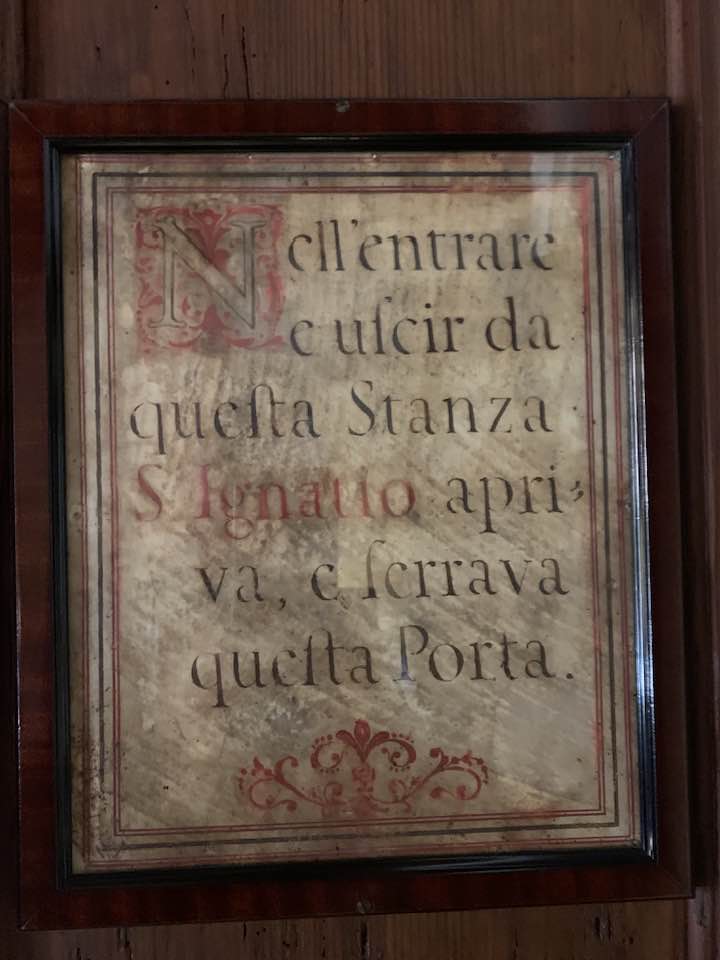 Nell'entrare
e uſcir da
queſta Stanza
S Ignatio apri-
va, e ſerrava
queſta Porta.